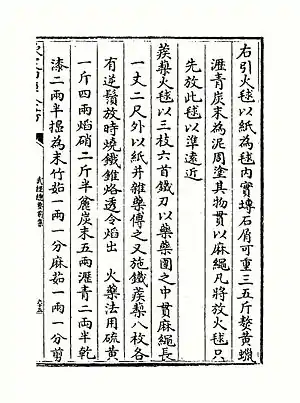 右引火毬以紙為毬内實塼石屑可重三五斤熬黄蠟
瀝青炭末為泥周塗其物貫以麻繩凡將放火毬只
先放此毬以準遠近
蒺藜火毬以三枝六首鐵刃以藥藥團之中貫麻繩長
一丈二尺外以紙并雜藥傅之又施鐵蒺藜八枚各
有逆鬚放時燒鐵錐烙透令焰出 火藥法用硫黄
一斤四兩焰硝二斤半麄炭末五兩瀝青二兩半乾
漆二兩半擣為末竹茹一兩一分麻茹一兩一分剪
武經總要前集